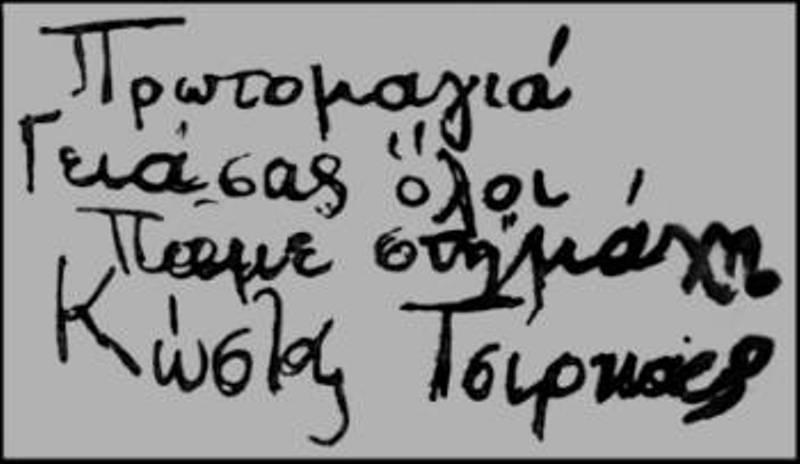 Πρωτομαγιά
Γειά σας ὅλοι
Πᾶμε στή μάχη
Κώστας Τσίρκας